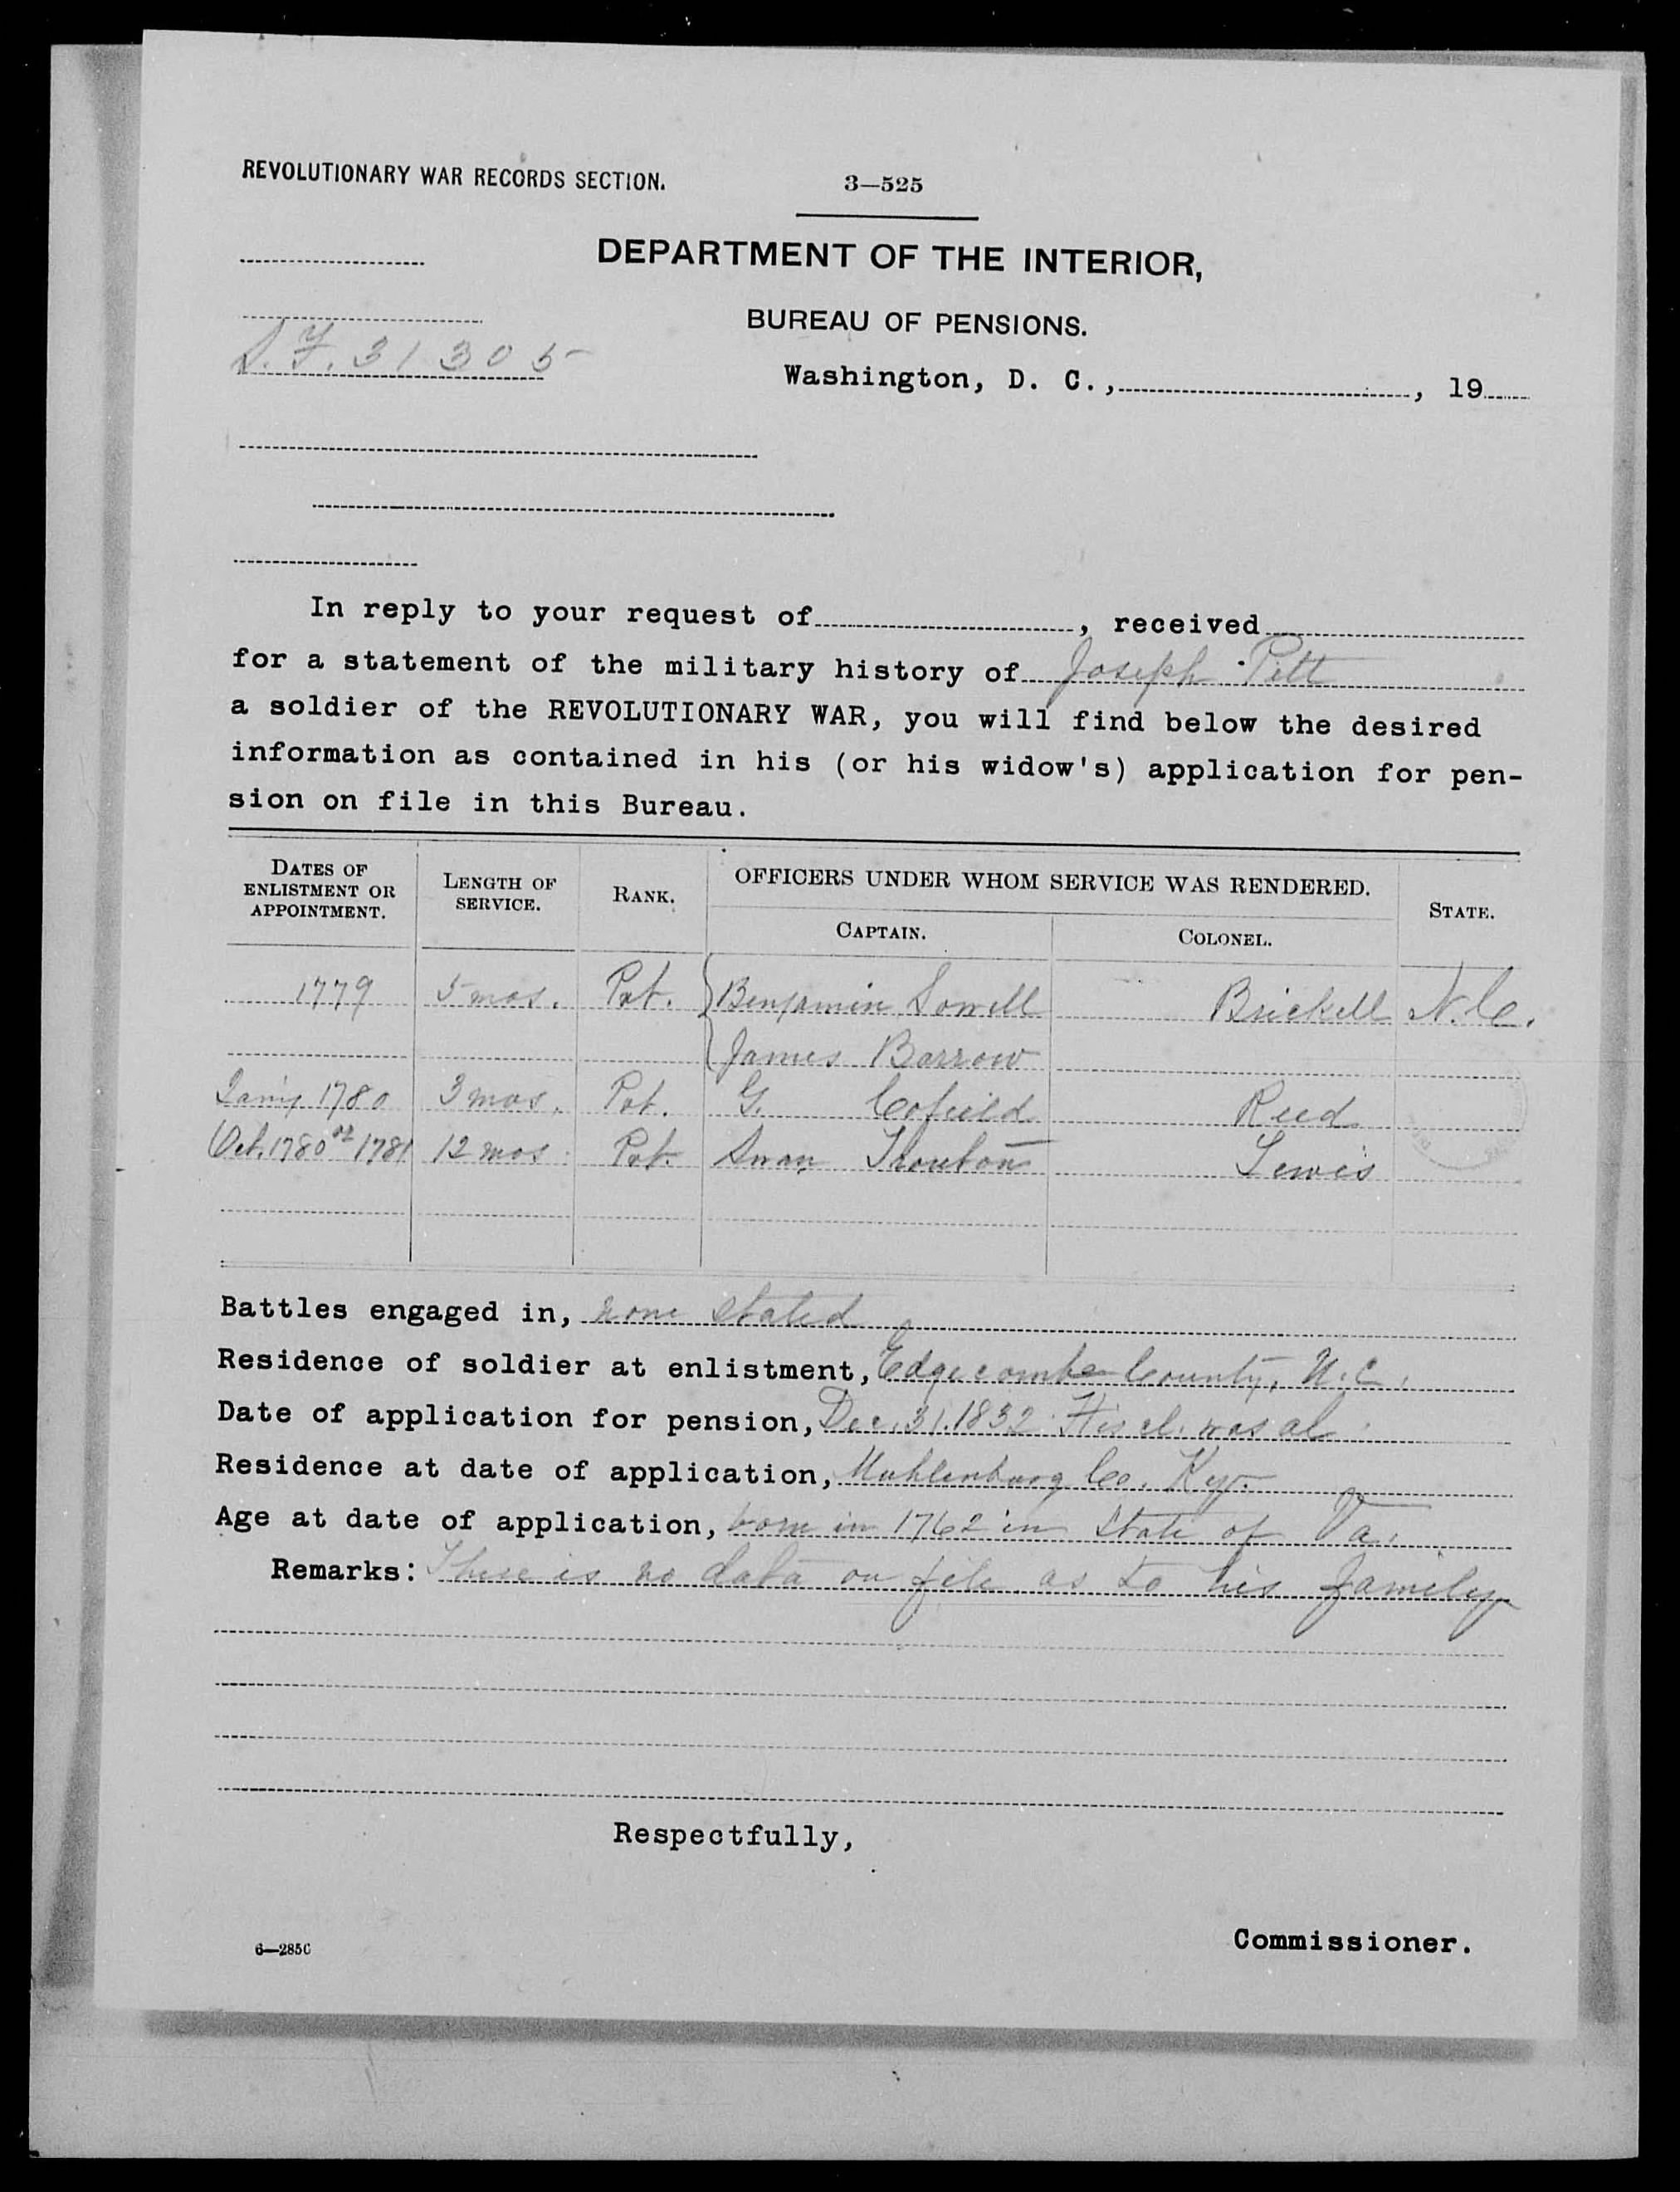 REVOLUTIONARY WAR RECORDS SECTION.
3—525
DEPARTMENT OF THE INTERIOR,
BUREAU OF PENSIONS.
S.F. 31305
Washington, D. C., , 19
In reply to your request of , received
for a statement of the military history of Joseph Pitt
a soldier of the REVOLUTIONARY WAR, you will find below the desired
information as contained in his (or his widow's) application for pen-
sion on file in this Bureau.
DATES OF ENLISTMENT OR APPOINTMENT.
LENGTH OF SERVICE.
RANK.
OFFICERS UNDER WHOM SERVICE WAS RENDERED.
CAPTAIN.
COLONEL.
STATE.
1779 5 mos. Pvt. Benjamin Sowell Brickell N.C.
James Barrow
1780 3 mos. Pvt. G. Cofield Reed
Oct. 1780 or 1781 12 mos. Pvt. Lewis
Battles engaged in, none stated
Residence of soldier at enlistment, Edgecombe County, N.C.
Date of application for pension, Dec. 31. 1832. His cl. was al.
Residence at date of application, Muhlenburg Co. Ky.
Age at date of application, born in 1762 in State of Va.
Remarks: There is no data on file as to his family
Respectfully,
Commissioner.
6—285C